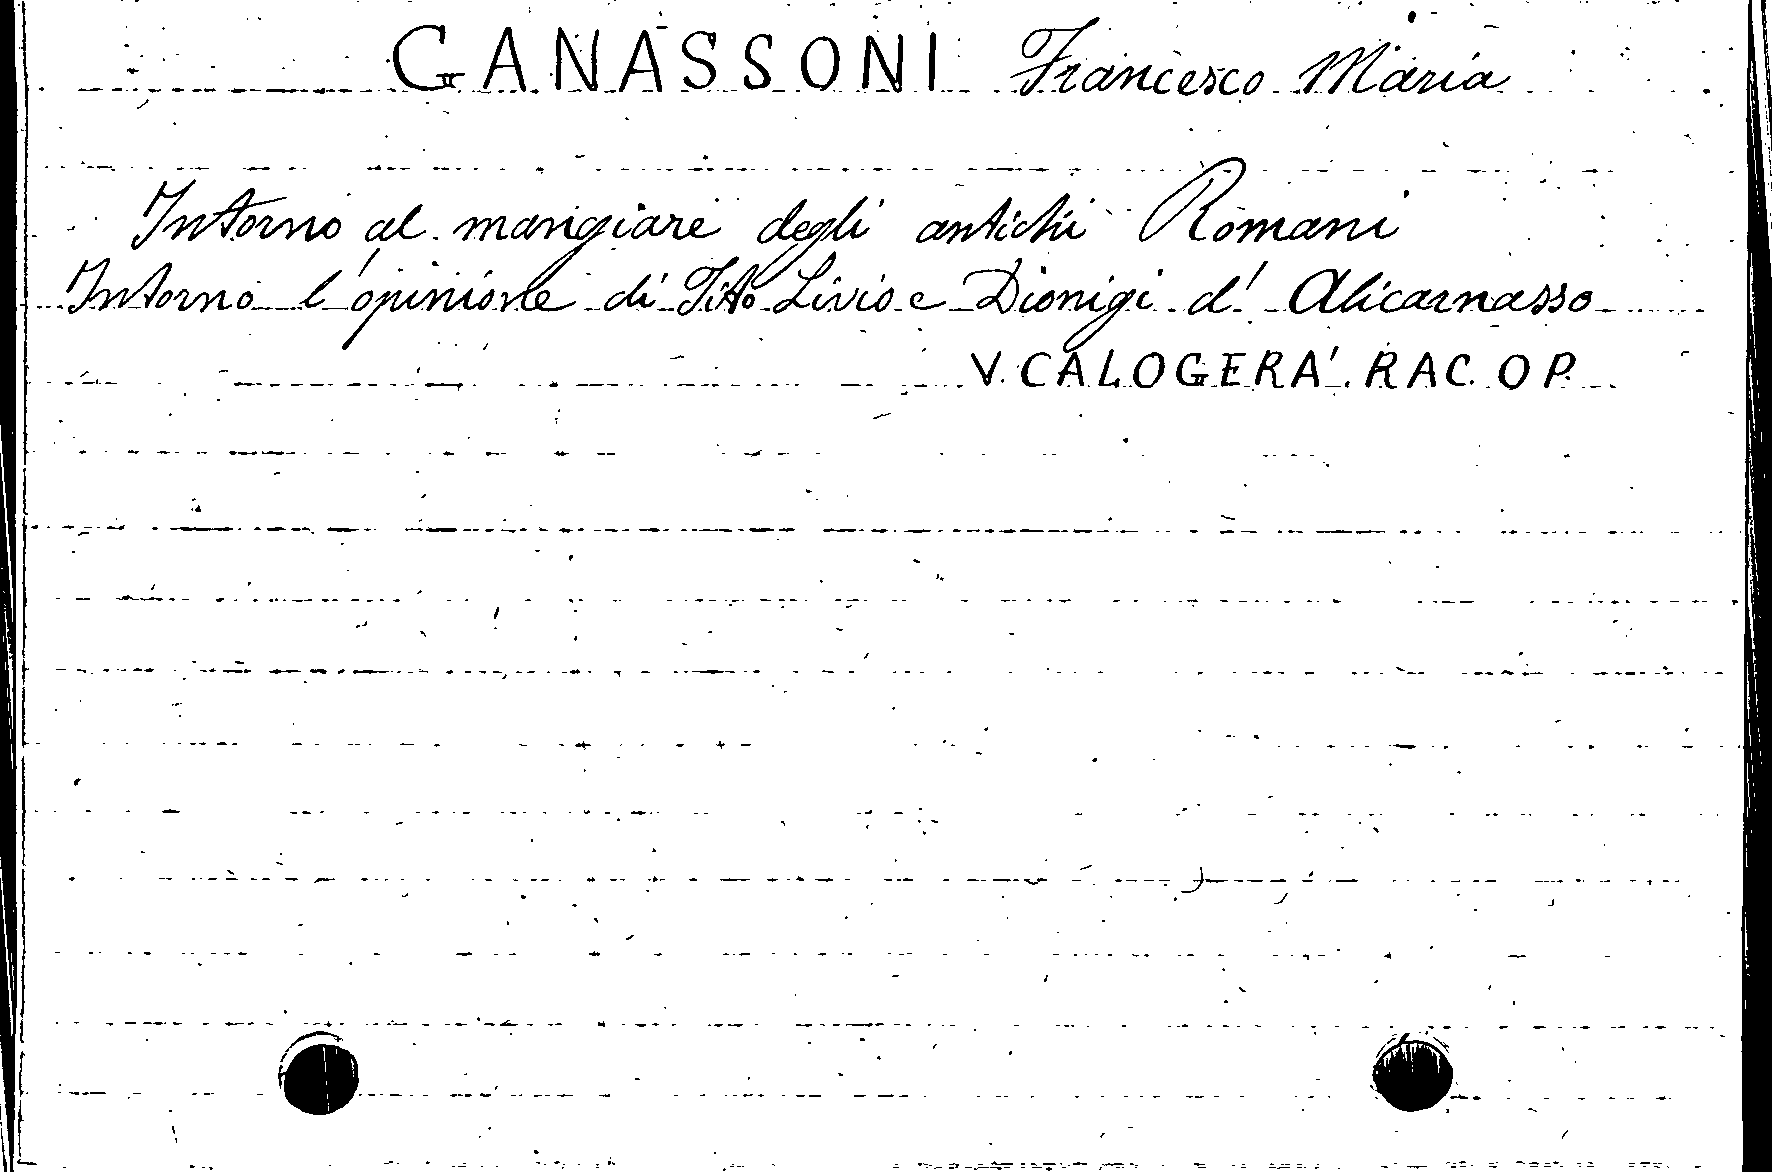 GANASSONI Francesco Maria
Intorno al mangiare degli antichi Romani
Intorno l'opinione di Tito Livio e Dionigi d'Alicarnasso
V. CALOGERA'. RAC. OP.